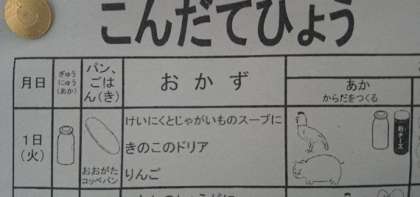 こんだてひょう
月日
ぎゅう
にゅう
(あか)
パン、
ごは
ん(き)
おかず
あか
からだをつくる
1日
(火)
おおがた
コッペパン
けいにくとじゃがいものスープに
きのこのドリア
りんご
粉チーズ